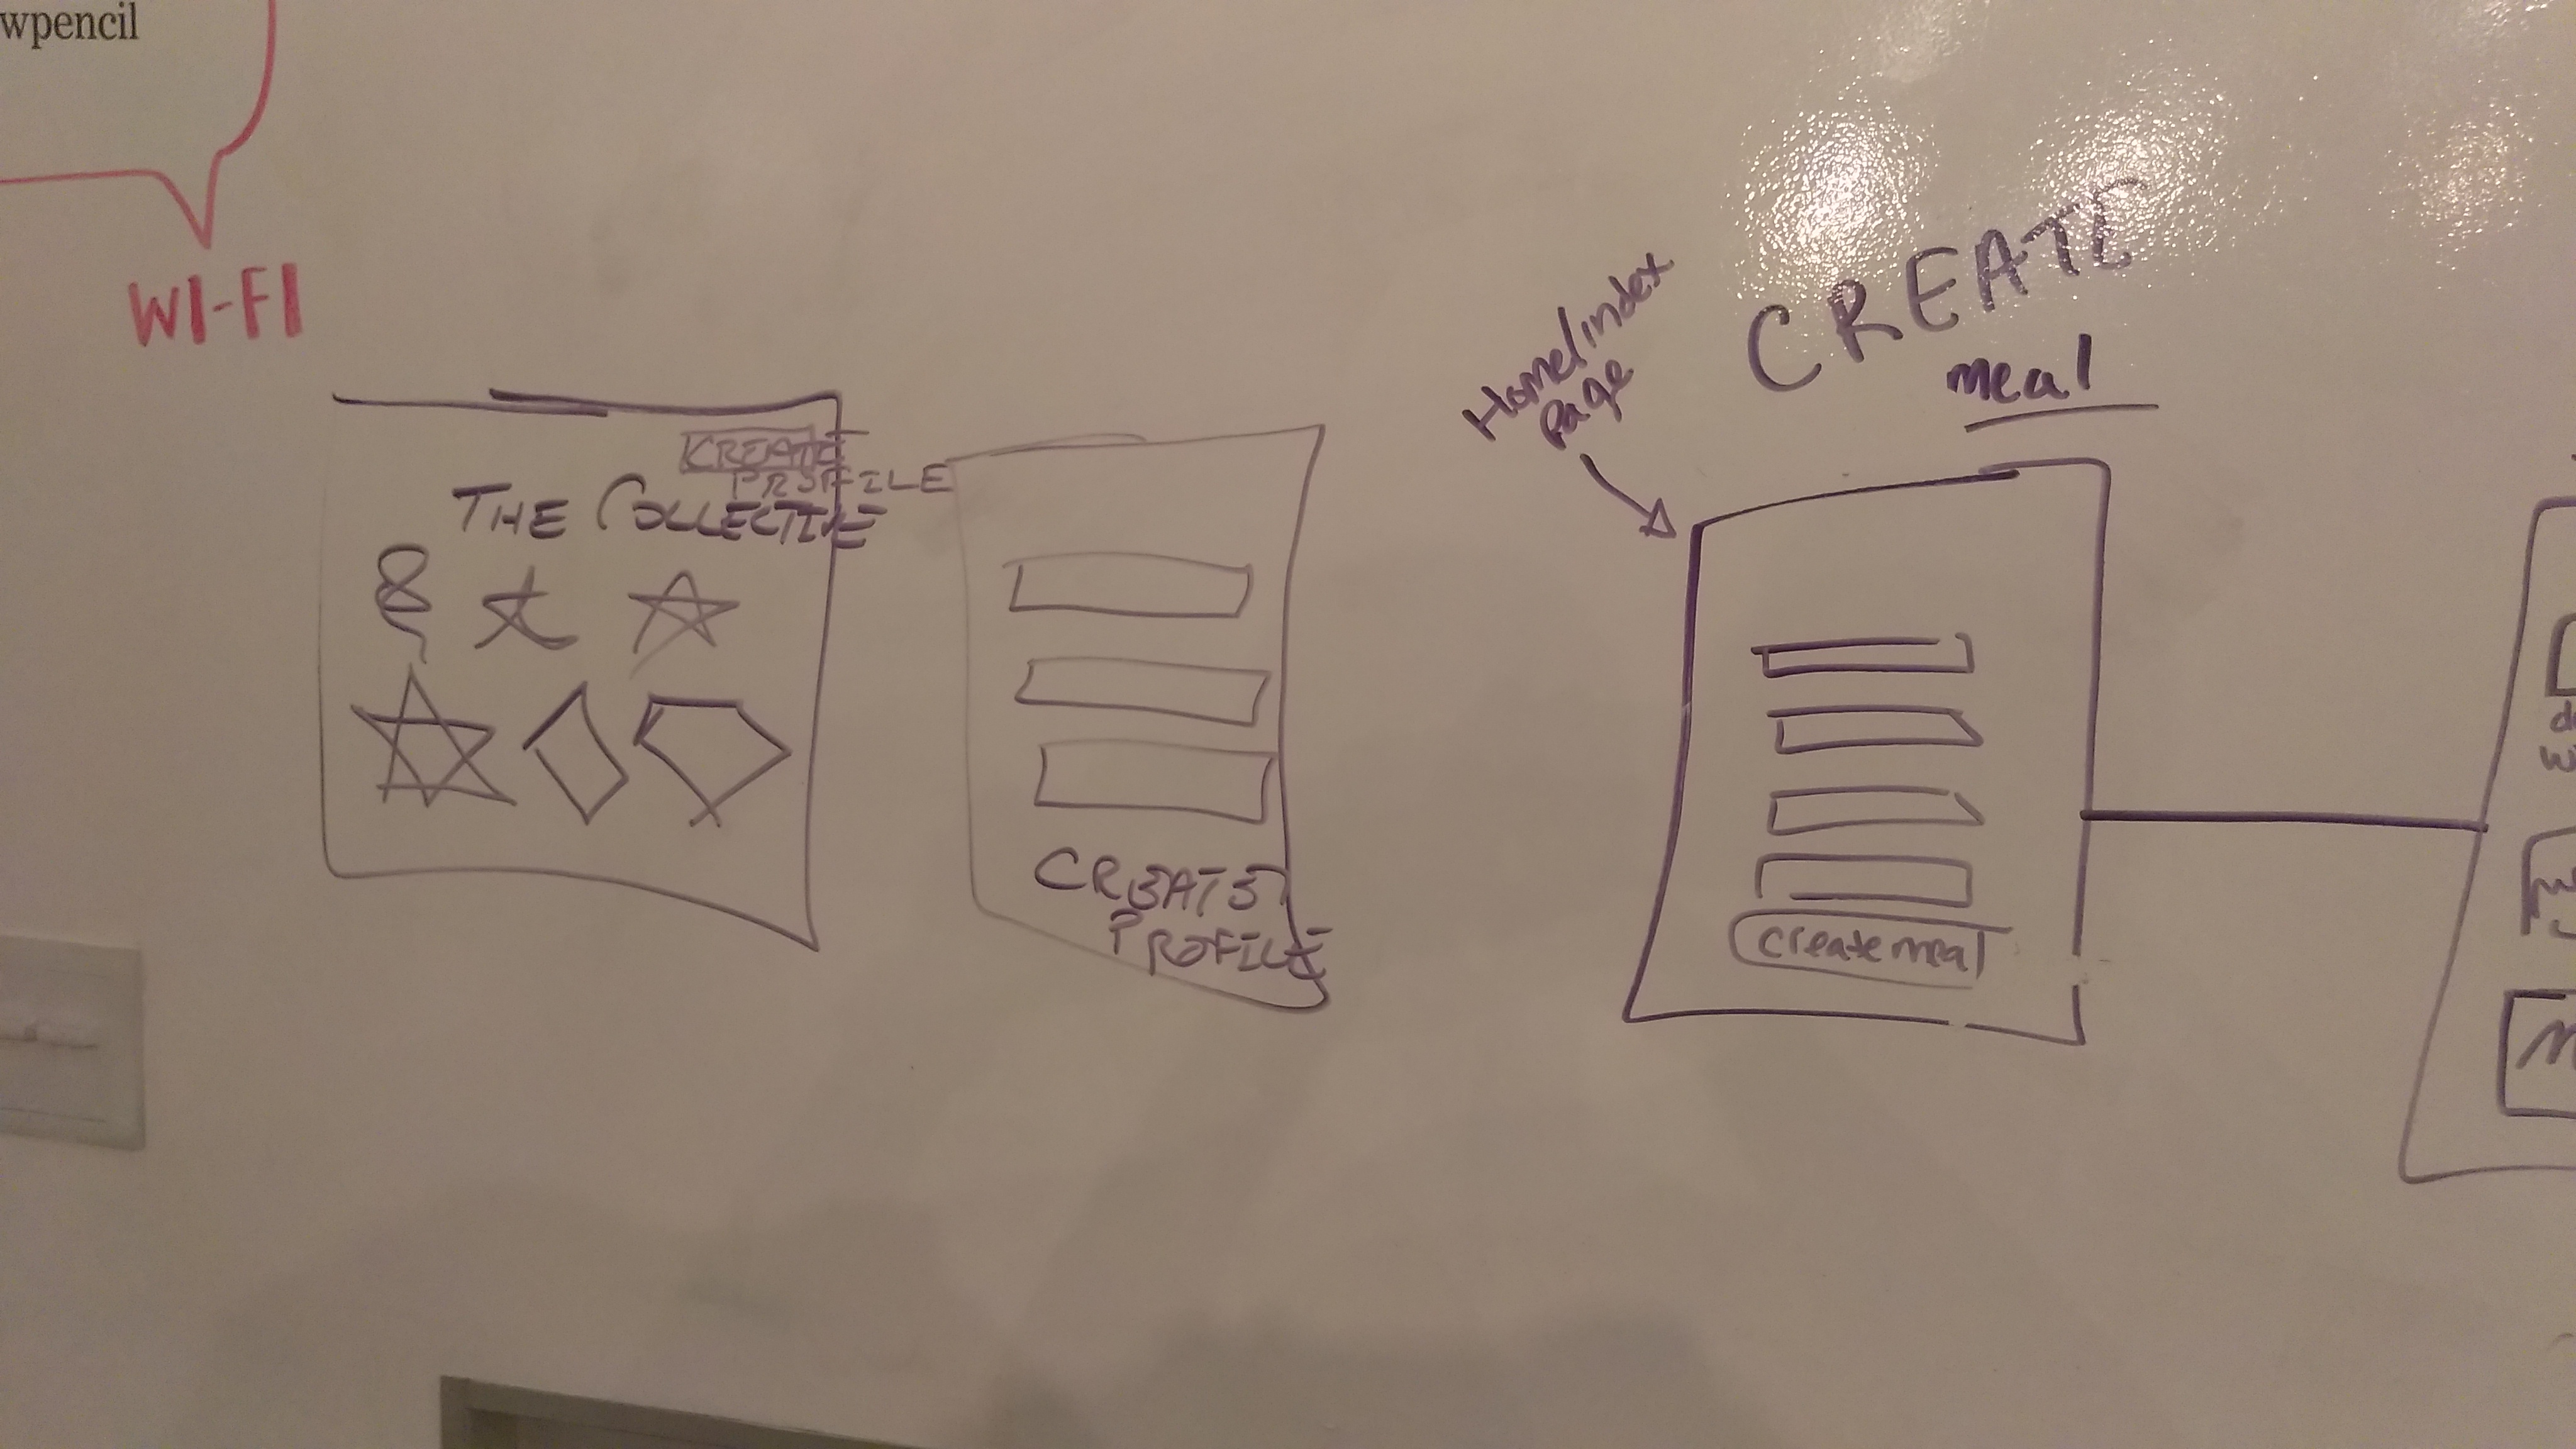 wpencil
WI-FI
CREATE
PROFILE
THE COLLECTIVE
CREATE
PROFILE
Home/index
page
CREATE
meal
create meal